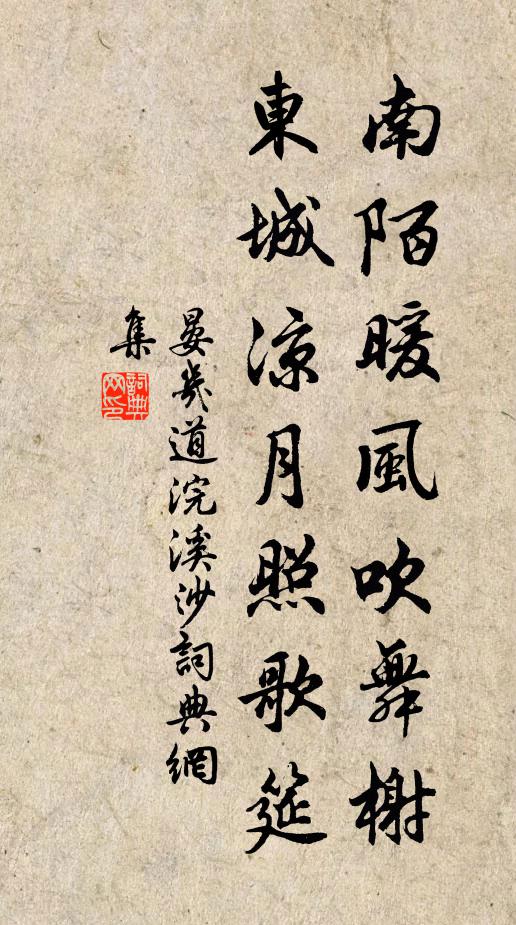 南陌暖風吹舞榭
東城涼月照歌筵
晏幾道浣溪沙詞典網
集
詞典
网印